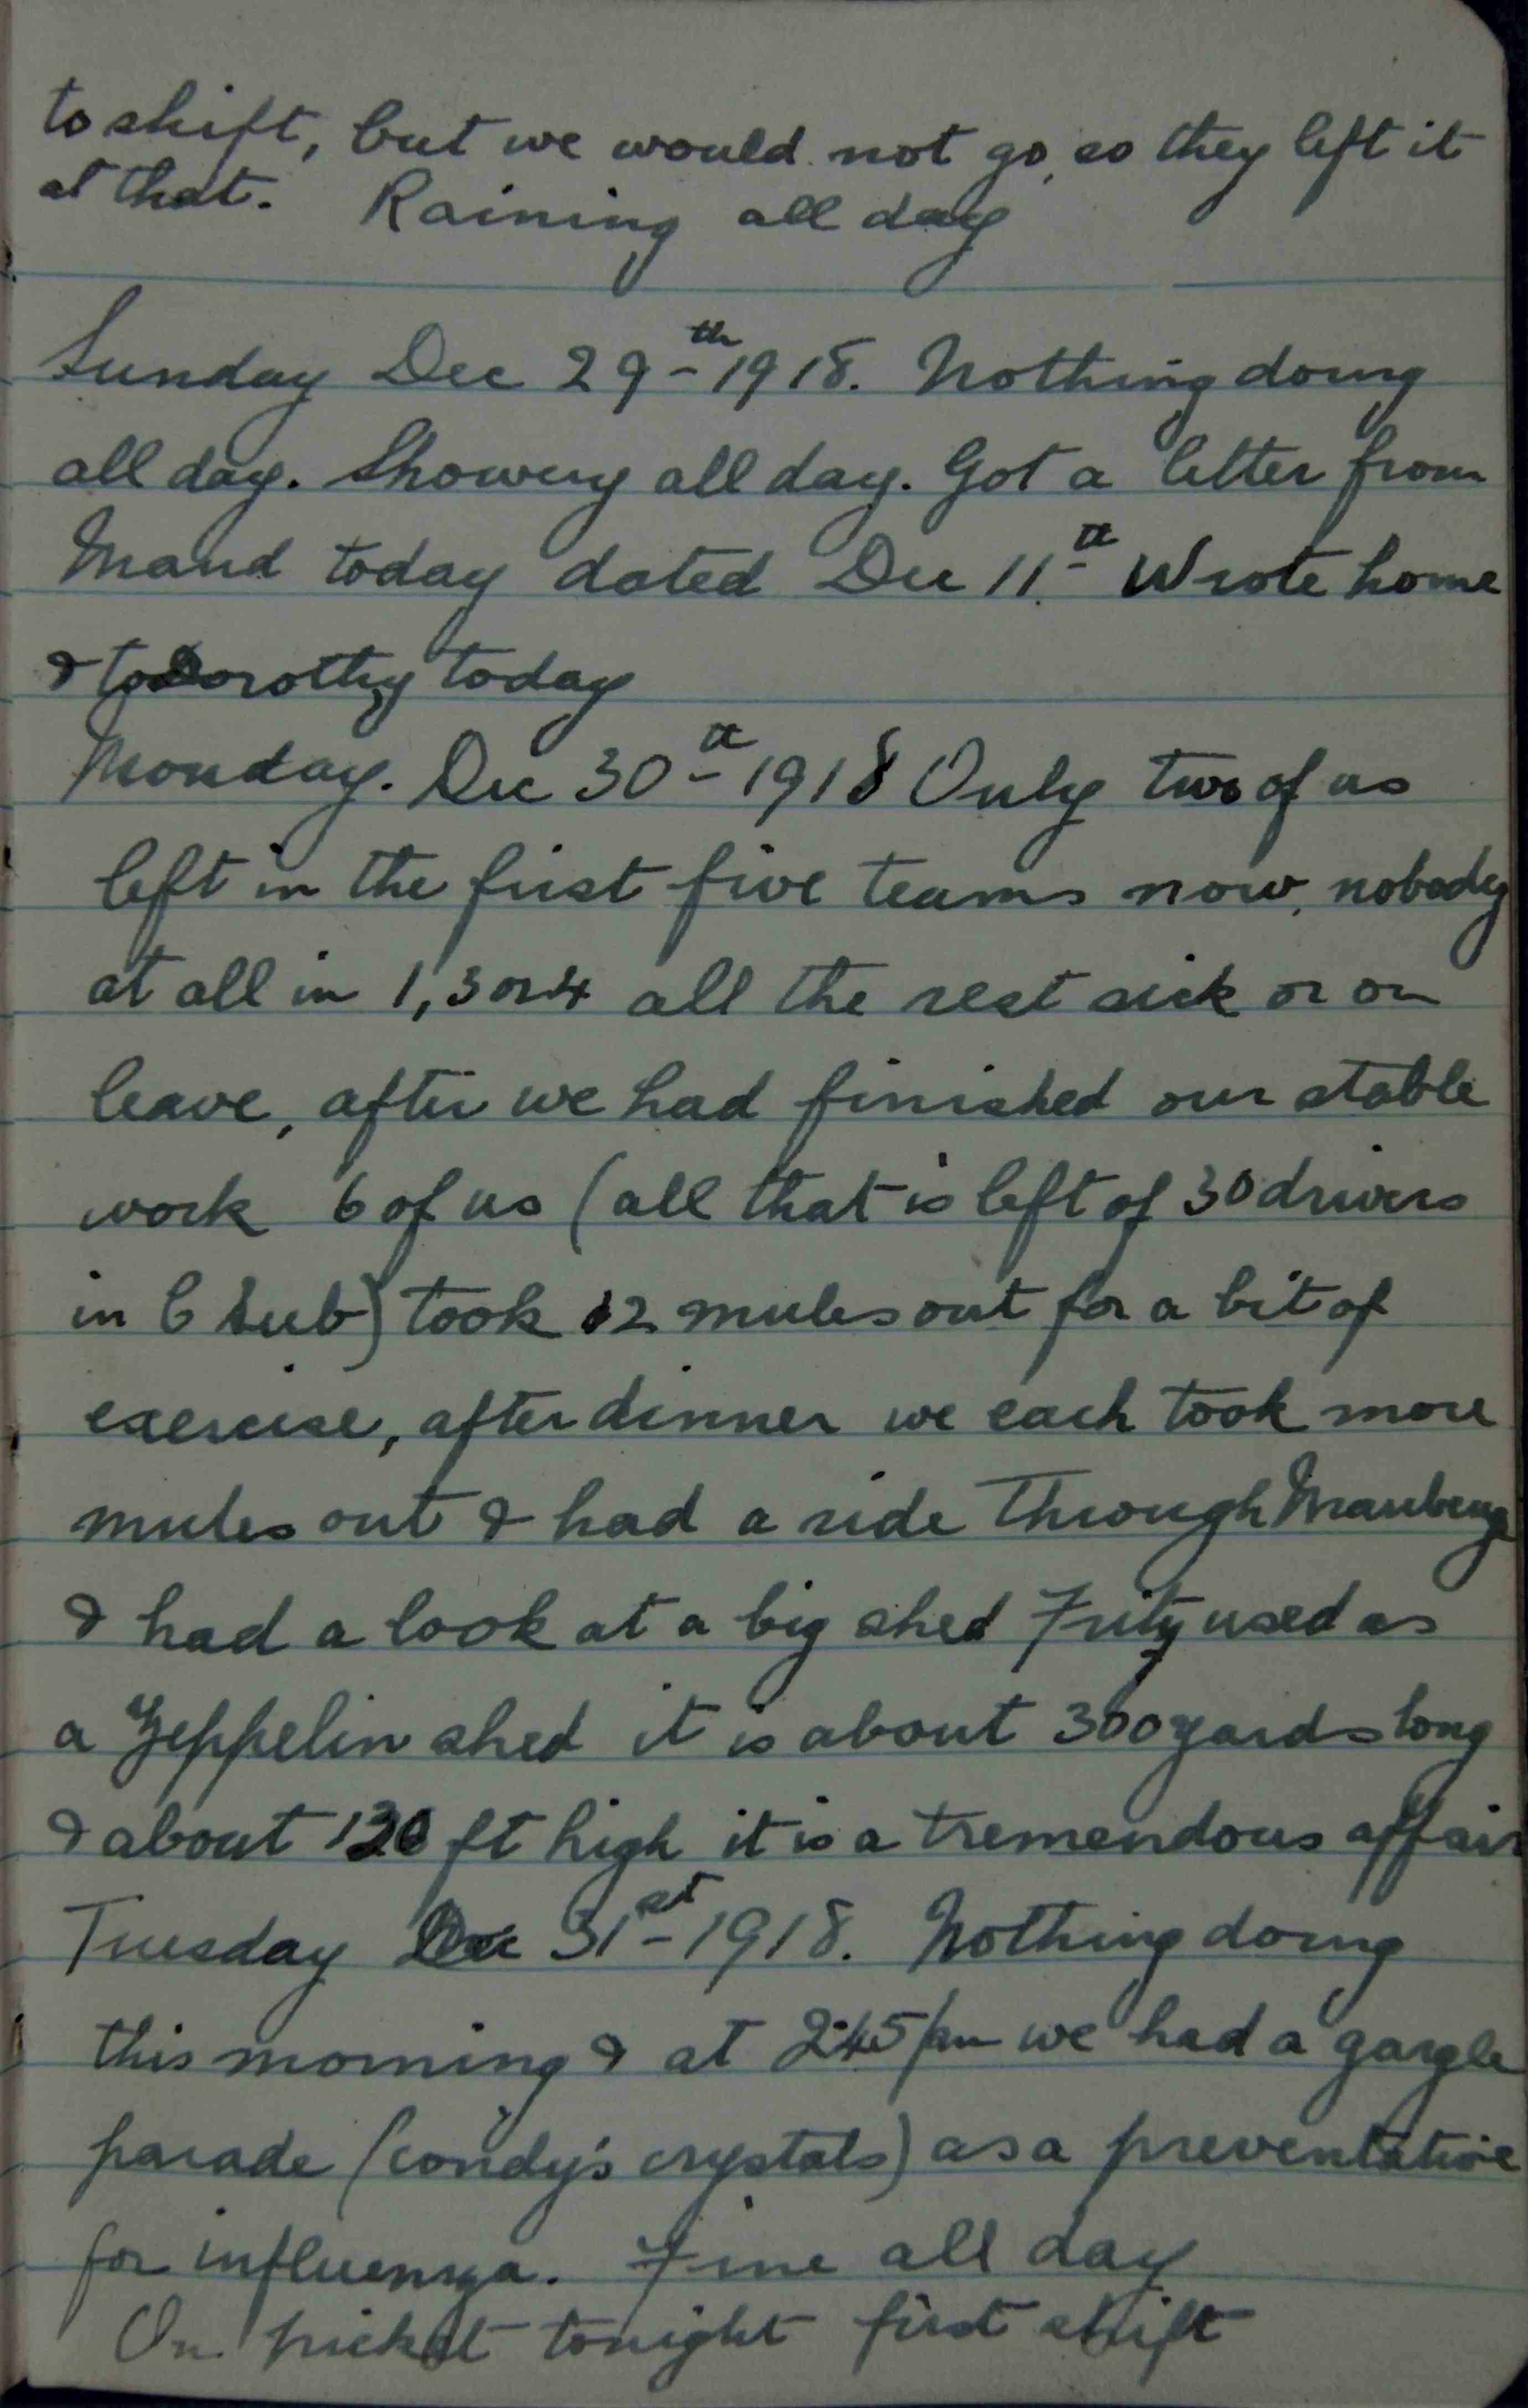 to shift, but we would not go, so they left it
at that. Raining all day
Sunday Dec 29th 1918. Nothing doing
all day. Showery all day. Got a letter from
Maud today dated Dec 11th Wrote home
& to Dorothy today
Monday. Dec 30th 1918 Only two of us
left in the first five teams now, nobody
at all in 1, 3 or 4 all the rest sick or on
leave, after we had finished our stable
work 6 of us (all that is left of 30 drivers
in C Sub) took 12 mules out for a bit of
exercise, after dinner we each took more
mules out & had a ride through Maubeuge
& had a look at a big shed Fritz used as
a Zeppelin shed it is about 300 yards long
& about ft high it is a tremendous affair
Tuesday Dec 31st 1918. Nothing doing
this morning & at 2.45 pm we had a gargle
parade (condy's crystals) as a preventative
for influenza. Fine all day
On picket tonight first shift